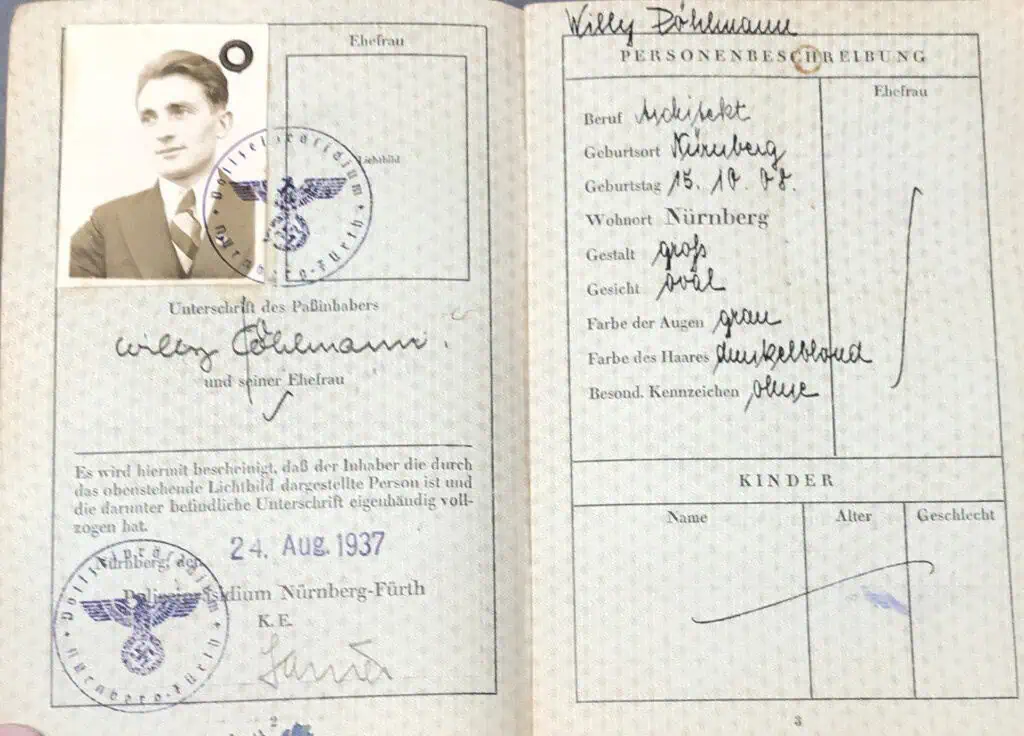 Ehefrau
Lichtbild
Polizeipräsidium
Nürnberg-Fürth
Unterschrift des Paßinhabers
Willy Döhlmann.
und seiner Ehefrau
Es wird hiermit bescheinigt, daß der Inhaber die durch
das obenstehende Lichtbild dargestellte Person ist und
die darunter befindliche Unterschrift eigenhändig voll-
zogen hat.
Nürnberg, den 24. Aug. 1937
Polizeipräsidium Nürnberg-Fürth
K. E.
Polizeipräsidium
Nürnberg-Fürth
2
Willy Döhlmann
PERSONENBESCHREIBUNG
Ehefrau
Beruf Architekt
Geburtsort Nürnberg
Geburtstag 15. 10. 08.
Wohnort Nürnberg
Gestalt groß
Gesicht oval
Farbe der Augen grau
Farbe des Haares dunkelblond
Besond. Kennzeichen ohne
KINDER
Name Alter Geschlecht
3